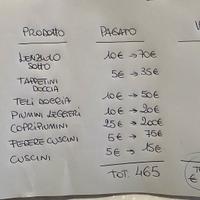 PRODOTTO PAGATO
LENZUOLO SOTTO 10€ → 70€
TAPPETINI DOCCIA 5€ → 35€
TELI DOCCIA 10€ → 50€
PIUMINI LEGGERI 10€ → 20€
COPRIPIUMINI 25€ → 200€
FEDERE CUSCINI 5€ → 75€
CUSCINI 5€ → 15€
TOT. 465
€